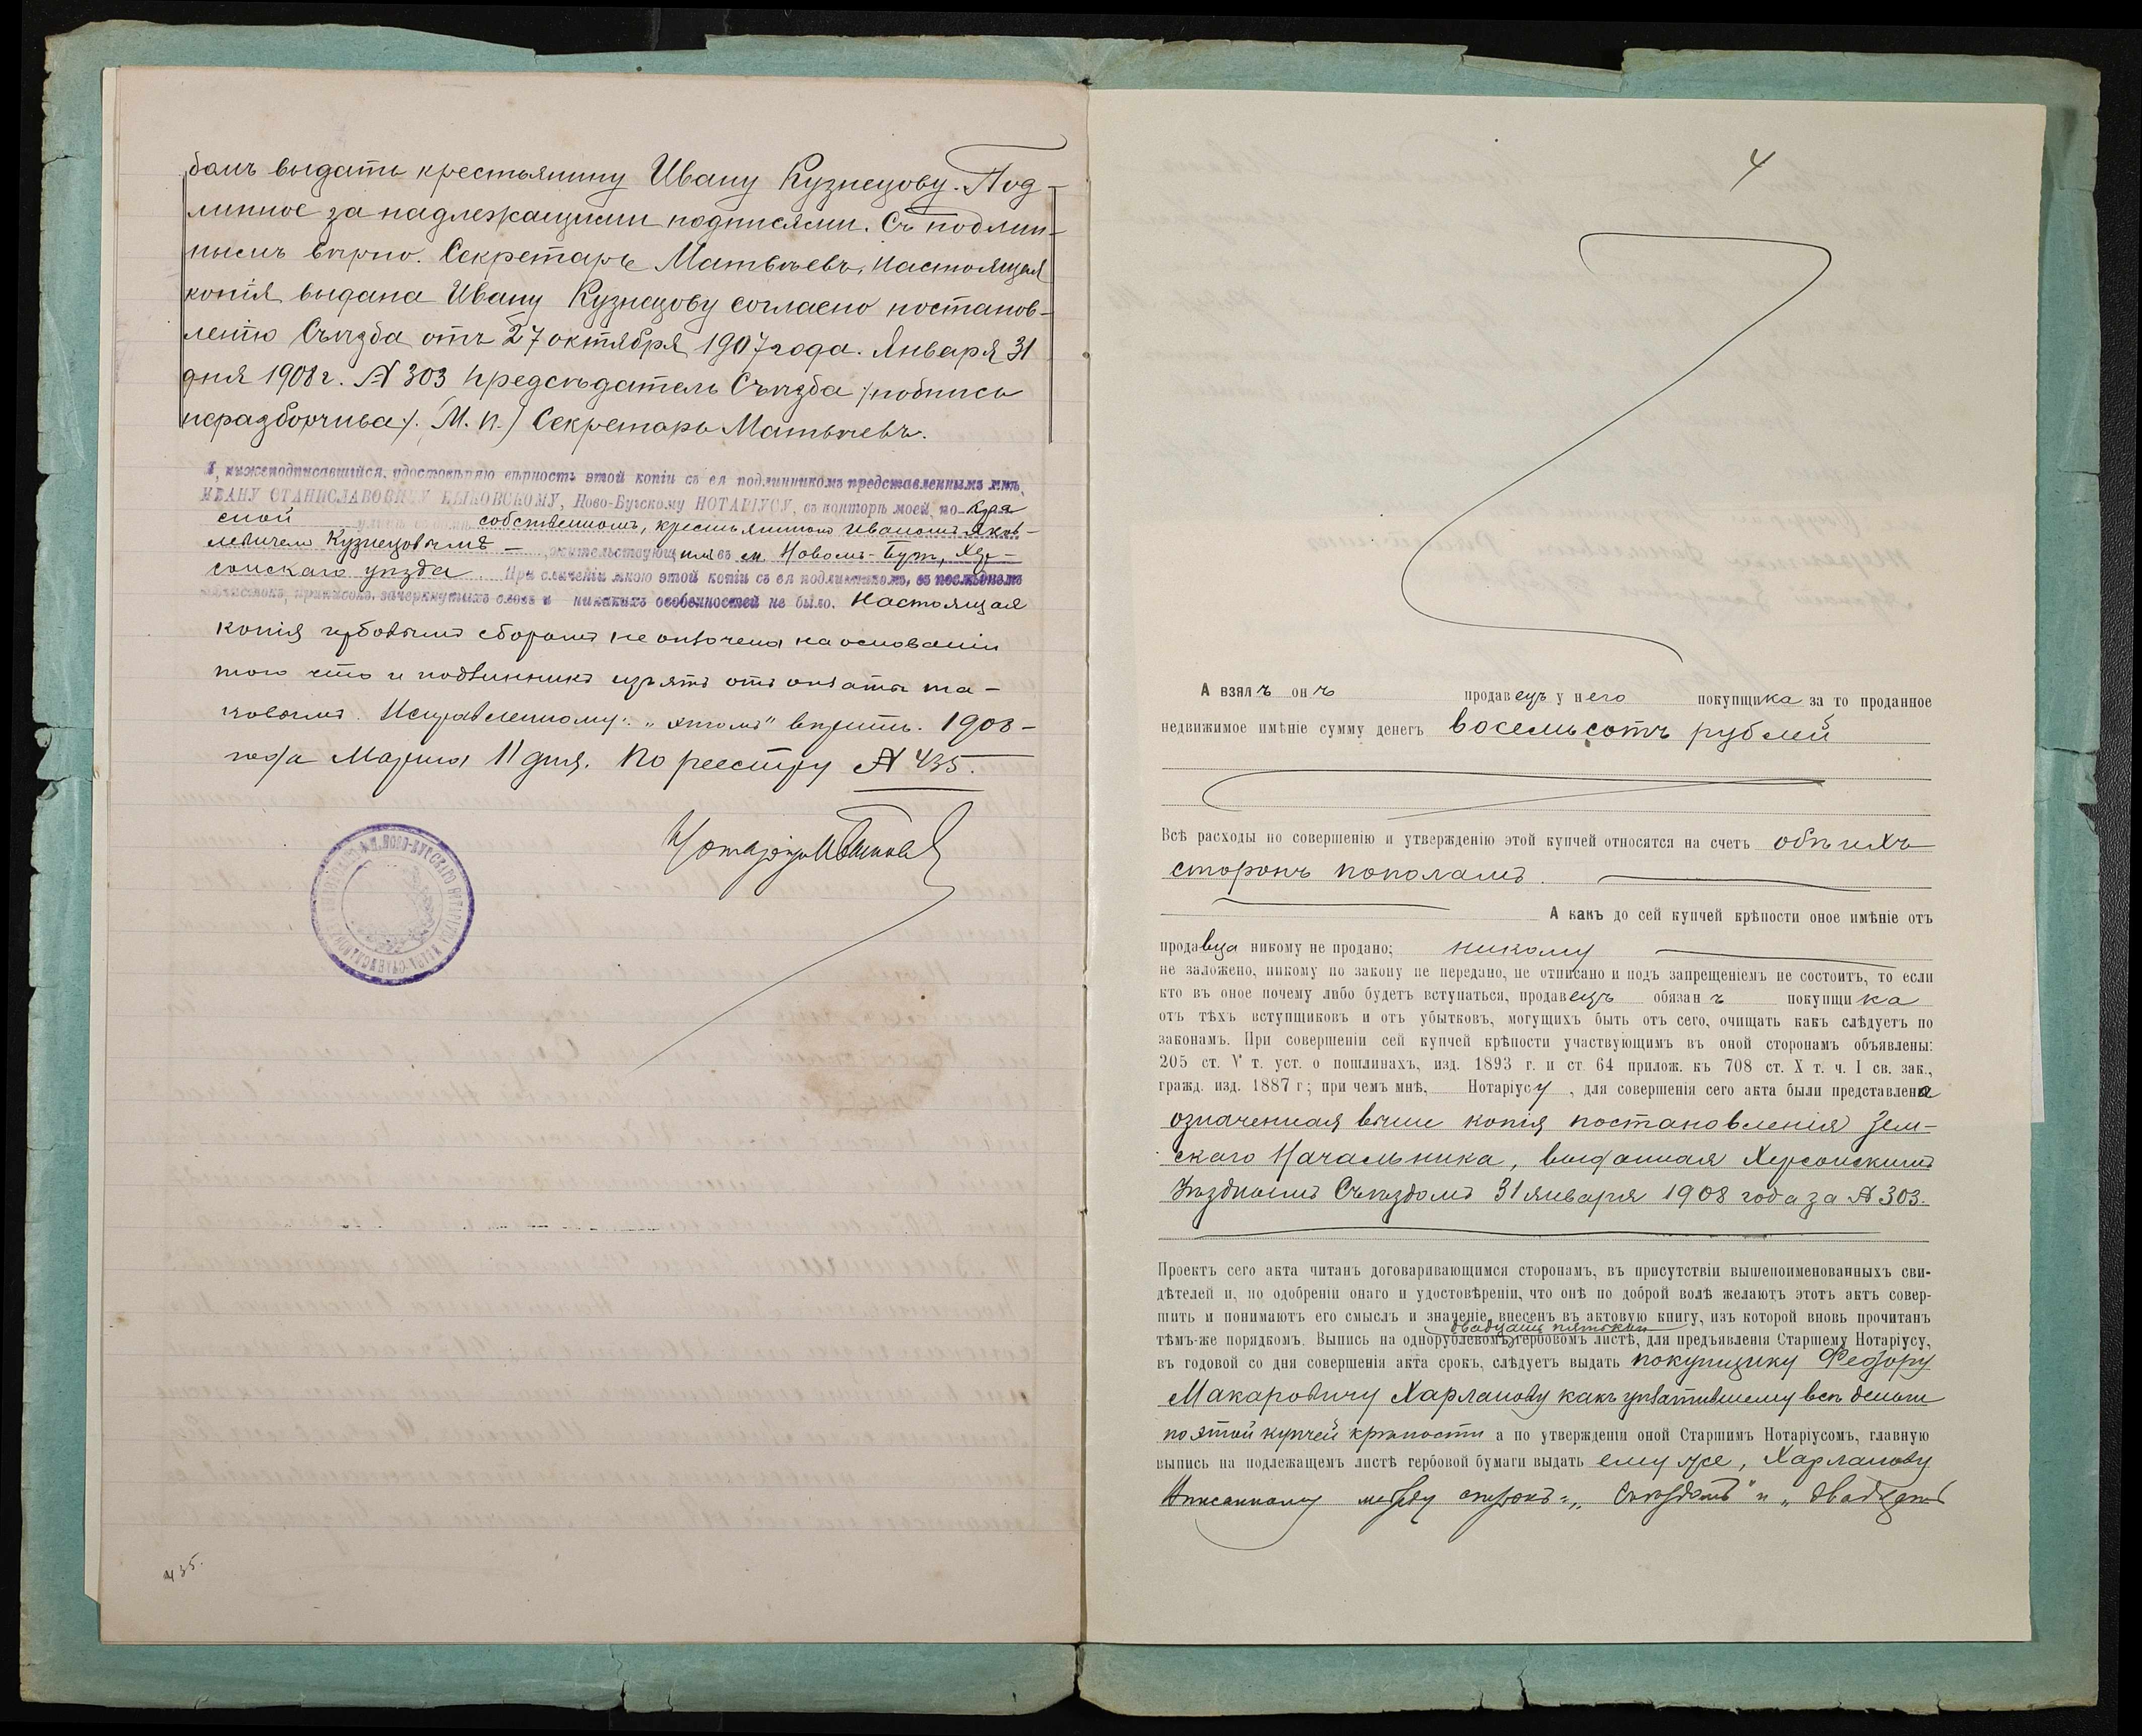 бомъ выдать крестьянину Ивану Кузнецову. Под-
линное за надлежащими подписями. Съ подлин-
нымъ вѣрно. Секретарь Матвѣевъ. Настоящая
копія выдана Ивану Кузнецову согласно постанов-
ленію Съѣзда отъ 27 октября 1907 года. Января 31
дня 1908 г. № 303 Предсѣдатель Съѣзда /:подпись
неразборчива:/. (М. П.) Секретарь Матвѣевъ.
Я, нижеподписавшійся, удостовѣряю вѣрность этой копіи съ ея подлинникомъ представленнымъ мнѣ,
ИВАНУ СТАНИСЛАВОВИЧУ БЫКОВСКОМУ, Ново-Бугскому НОТАРІУСУ, въ конторѣ моей, по Крас
ной улицѣ собственномъ, крестьяниномъ Иваномъ Яков-
левичемъ Кузнецовымъ — жительствующимъ въ м. Новомъ-Бугѣ, Хер-
сонскаго уѣзда. При сличеніи мною этой копіи съ ея подлинникомъ, въ послѣднемъ
подчистокъ, приписокъ, зачеркнутыхъ словъ и никакихъ особенностей не было. Настоящая
копія гербовымъ сборомъ не оплочена на основаніи
того что и подлинникъ изъятъ отъ оплаты та-
ковымъ. Исправленному: вѣрить. 1908 -
года Марта 11 дня. По реестру № 435.
Нотаріусъ
435.
4
А взялъ онъ продавецъ у него покупщика за то проданное
недвижимое имѣніе сумму денегъ восемьсотъ рублей
Всѣ расходы по совершенію и утвержденію этой купчей относятся на счетъ обѣихъ
сторонъ пополамъ.
А какъ до сей купчей крѣпости оное имѣніе отъ
продавца никому не продано; никому
не заложено, никому по закону не передано, не отписано и подъ запрещеніемъ не состоитъ, то если
кто въ оное почему либо будетъ вступаться, продавецъ обязанъ покупщика
отъ тѣхъ вступщиковъ и отъ убытковъ, могущихъ быть отъ сего, очищать какъ слѣдуетъ по
законамъ. При совершеніи сей купчей крѣпости участвующимъ въ оной сторонамъ объявлены:
205 ст. V т. уст. о пошлинахъ, изд. 1893 г. и ст. 64 прилож. къ 708 ст. X т. ч. I св. зак.,
гражд. изд. 1887 г; при чемъ мнѣ, Нотаріусу, для совершенія сего акта были представлена
означенная выше копія постановленія Зем-
скаго Начальника, выданная Херсонскимъ
Уѣзднымъ Съѣздомъ 31 января 1908 года за № 303.
Проектъ сего акта читанъ договаривающимся сторонамъ, въ присутствіи вышепоименованныхъ сви-
дѣтелей и, по одобреніи онаго и удостовѣреніи, что онѣ по доброй волѣ желаютъ этотъ актъ совер-
шить и понимаютъ его смыслъ и значеніе, внесенъ въ актовую книгу, изъ которой вновь прочитанъ
двадцати пятикоп
тѣмъ-же порядкомъ. Выпись на однорублевомъ гербовомъ листѣ, для предъявленія Старшему Нотаріусу,
въ годовой со дня совершенія акта срокъ, слѣдуетъ выдать покупщику Федору
Макаровичу Харланову какъ уплатившему всѣ деньги
по этой купчей крѣпости а по утвержденіи оной Старшимъ Нотаріусомъ, главную
выпись на подлежащемъ листѣ гербовой бумаги выдать ему же, Харланову
Приписанному между строкъ: „Съѣздомъ" и „двадцати